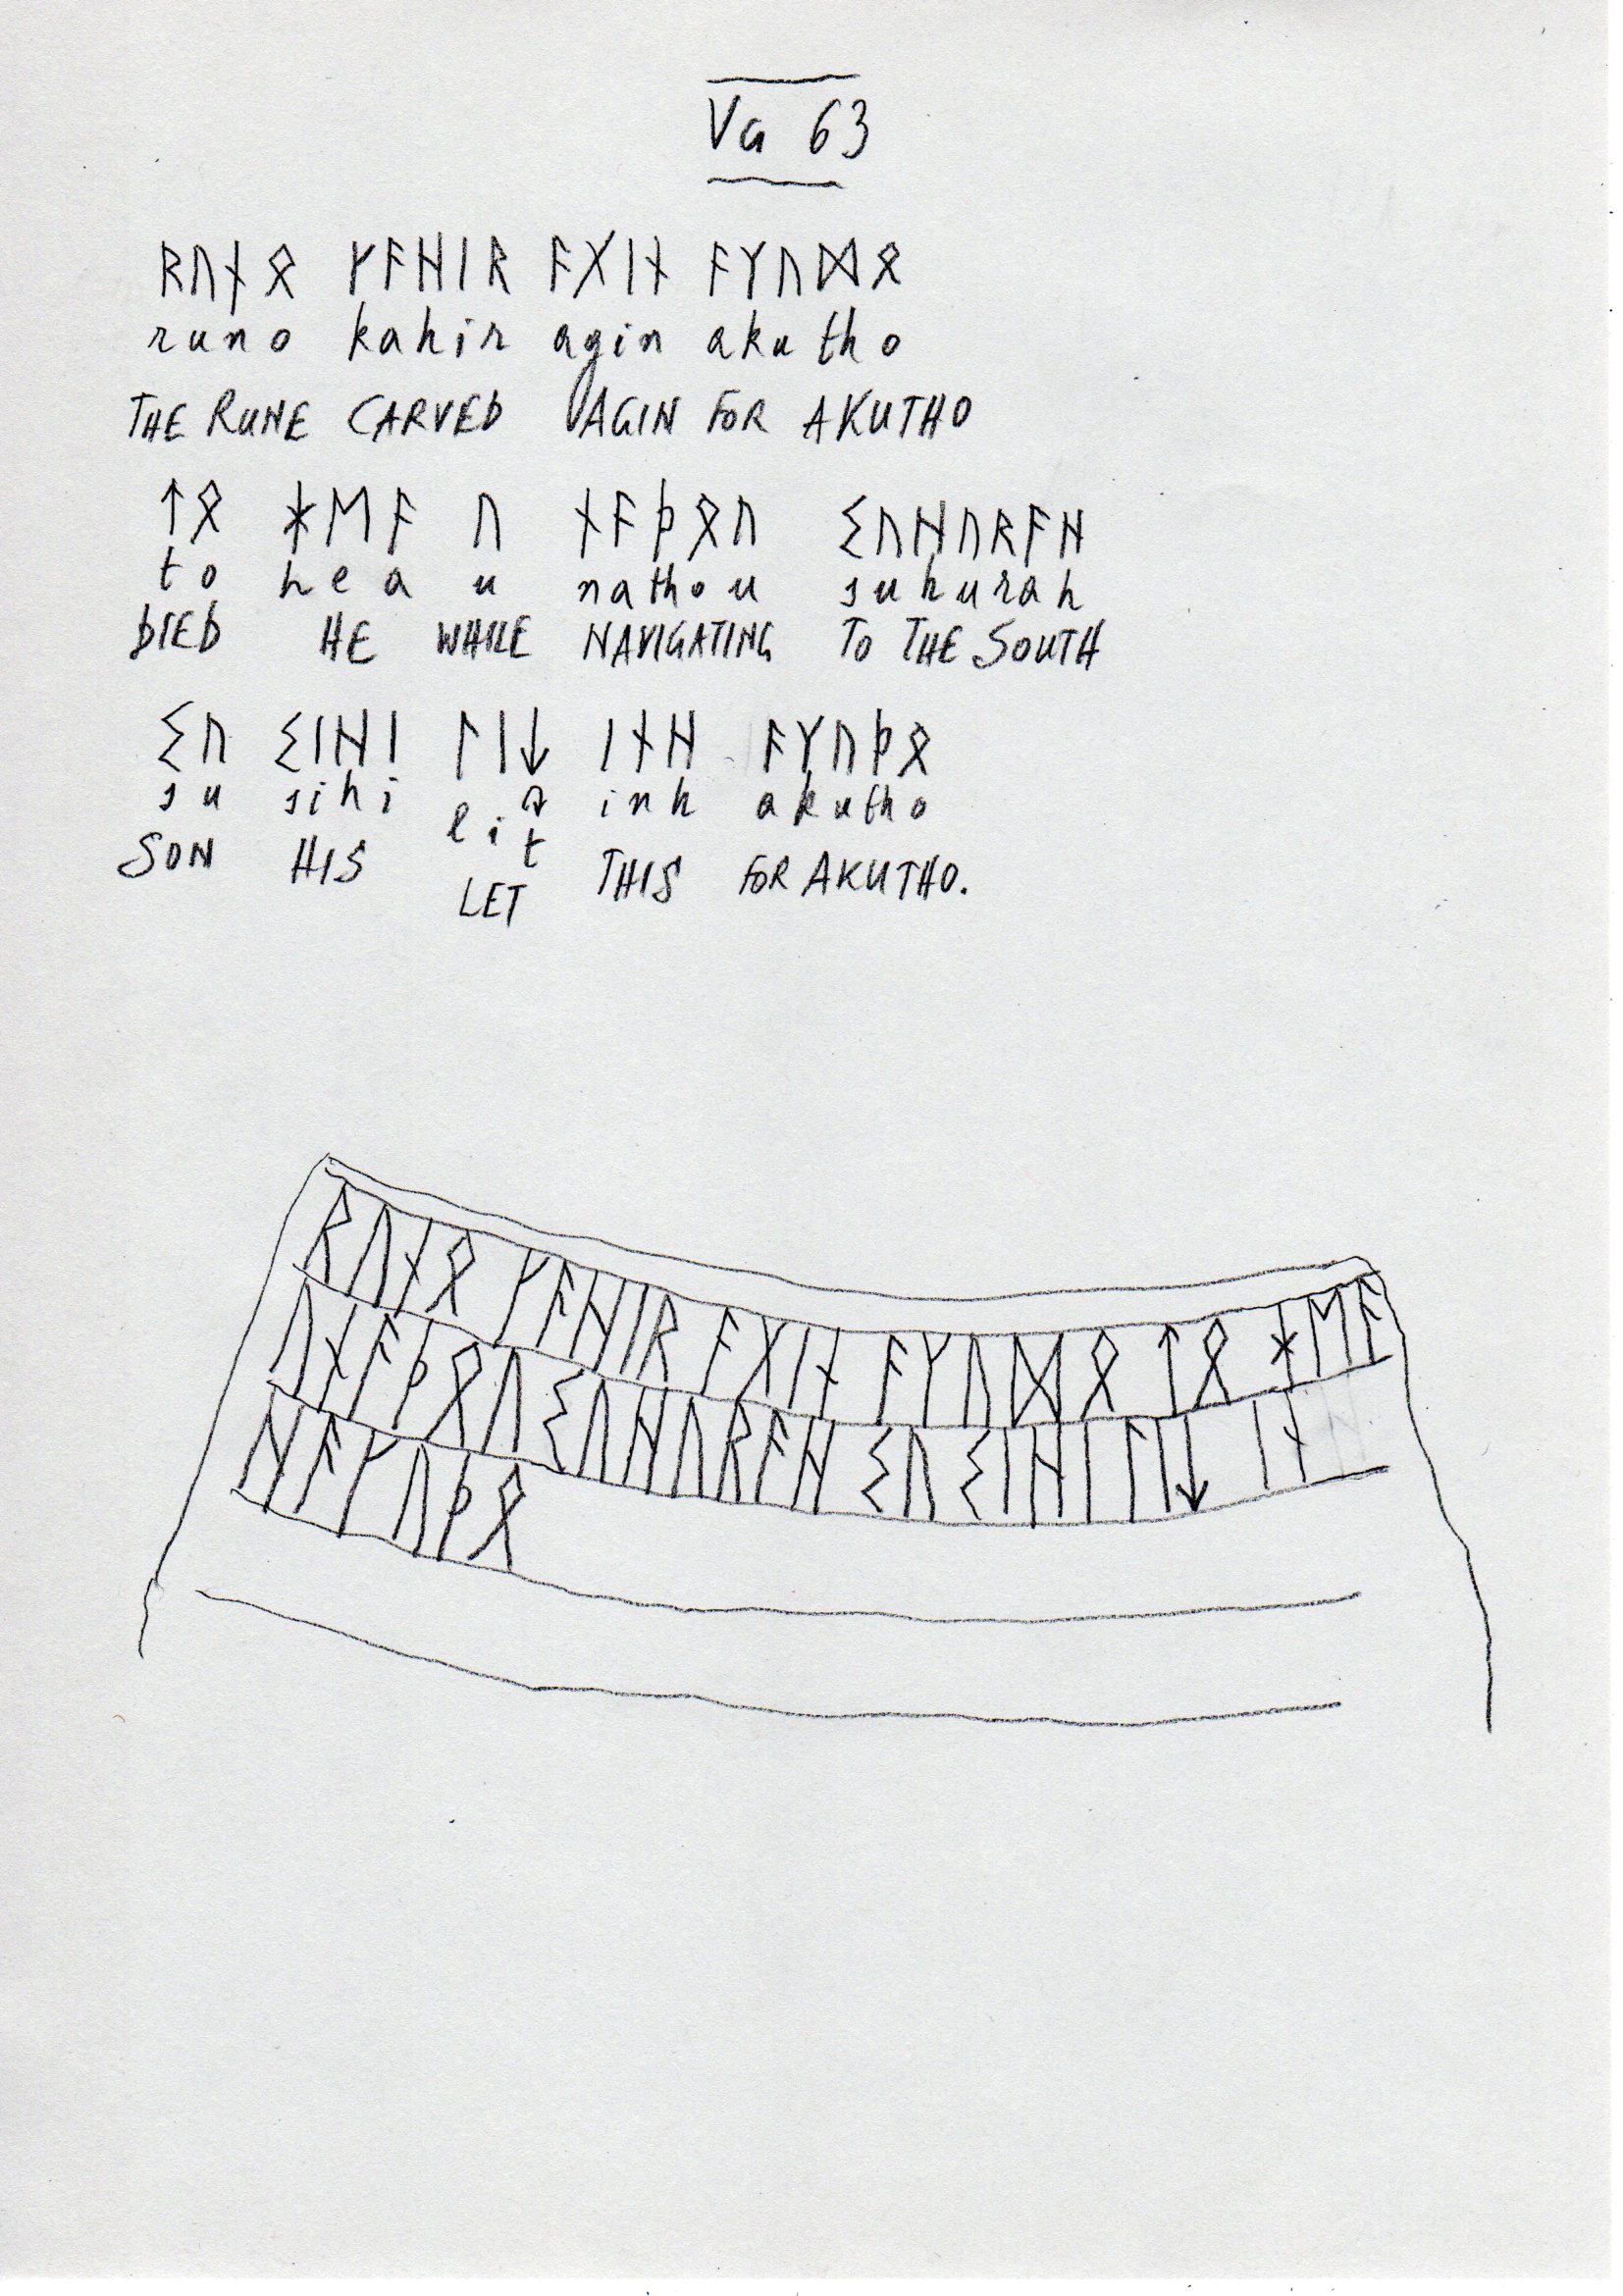 VG 63
ᚱᚢᚾᛟ ᚴᚨᚺᛁᚱ ᚨᚷᛁᚾ ᚨᚴᚢᛞᛟ
runo kahir agin akutho
THE RUNE CARVED AGIN FOR AKUTHO
ᛏᛟ ᚼᛖᚨ ᚢ ᚾᚨᚦᛟᚢ ᛊᚢᚺᚢᚱᚨᚺ
to hea u nathou suhurah
DIED HE WHILE NAVIGATING TO THE SOUTH
ᛊᚢ ᛊᛁᚺᛁ ᛚᛁ↓ ᛁᚾᚺ ᚨᚴᚢᚦᛟ
su sihi liR inh akutho
t
SON HIS LET THIS FOR AKUTHO.
ᚱᚢᚾᛟ ᚴᚨᚺᛁᚱ ᚨᚷᛁᚾ ᚨᚴᚢᛞᛟ ᛏᛟ ᚼᛖᚨ
ᚢᚾᚨᚦᛟᚢᛊᚢᚺᚢᚱᚨᚺ ᛊᚢ ᛊᛁᚺᛁ ᛚᛁ↓ ᛁᚾ
ᚺᚨᚴᚢᚦᛟ